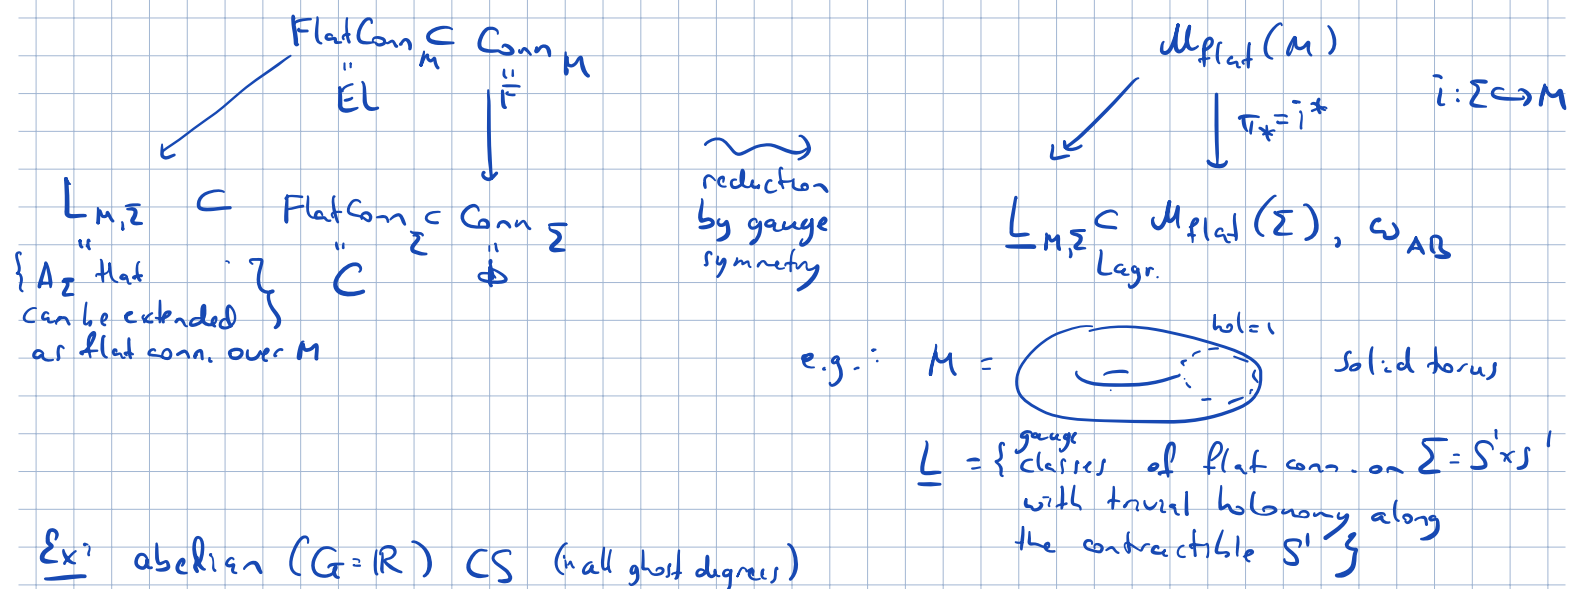 FlatConn_M ⊂ Conn_M
" "
EL F
L_{M,Σ} ⊂ FlatConn_Σ ⊂ Conn_Σ
" " "
{ A_Σ flat } C Φ
can be extended
as flat conn. over M
reduction
by gauge
symmetry
M_flat(M)
i: Σ ↪ M
π_* = i^*
L_{M,Σ} ⊂ M_flat(Σ), ω_AB
Lagr.
hol=1
e.g.: M = solid torus
L = { gauge classes of flat conn. on Σ = S¹×S¹
with trivial holonomy along
the contractible S¹ }
Ex: abelian (G=ℝ) CS (in all ghost degrees)